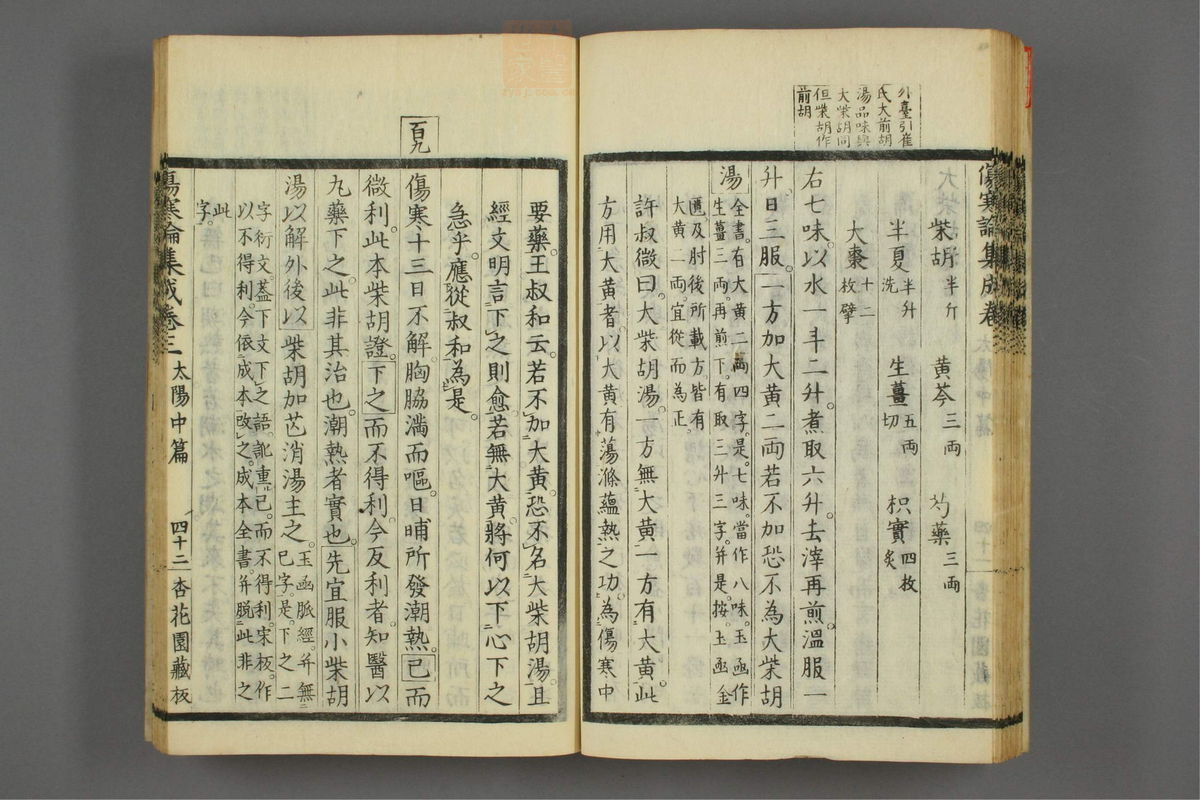 外臺引崔
氏大前胡
湯品味與
大柴胡同
但柴胡作
前胡
傷寒論集成卷
柴胡半斤 黃芩三兩 芍藥三兩
半夏半升洗 生薑五兩切 枳實四枚炙
大棗十二枚擘
右七味以水一斗二升煮取六升去滓再煎溫服一
升。日三服。一方加大黃二兩若不加恐不為大柴胡
湯全書。有大黃二兩四字。是。七味。當作八味。玉函作
生薑三兩。再煎下。有取三升三字。并是。按。玉函金
匱及肘後所載方。皆有
大黃一兩。宜從而為正
許叔微曰。大柴胡湯。一方無大黃。一方有大黃。此
方用大黃者。以大黃有蕩滌蘊熱之功。為傷寒中
要藥。王叔和云。若不加大黃。恐不名大柴胡湯。且
經文明言下之則愈。若無大黃。將何以下心下之
急乎。應從叔和為是。
百九
傷寒十三日不解。胸脇滿而嘔。日晡所發潮熱。已而
微利。此本柴胡證。下之而不得利。今反利者。知醫以
丸藥下之。此非其治也。潮熱者實也。先宜服小柴胡
湯以解外後以柴胡加芒消湯主之。玉函脈經。并無
已字。是。下之二
字衍文。蓋下文下之語。訛重已。而不得利。宋板。作
以不得利。今依成本改之。成本全書。并脫此非之
此
字。
傷寒論集成卷三 太陽中篇 四十二 杏花園藏板